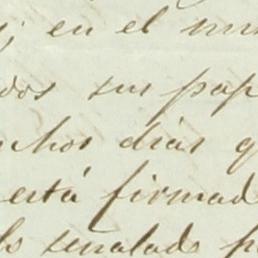 ; en el mu
dos sus pap
chos dias q
está firmad
lo senalado p